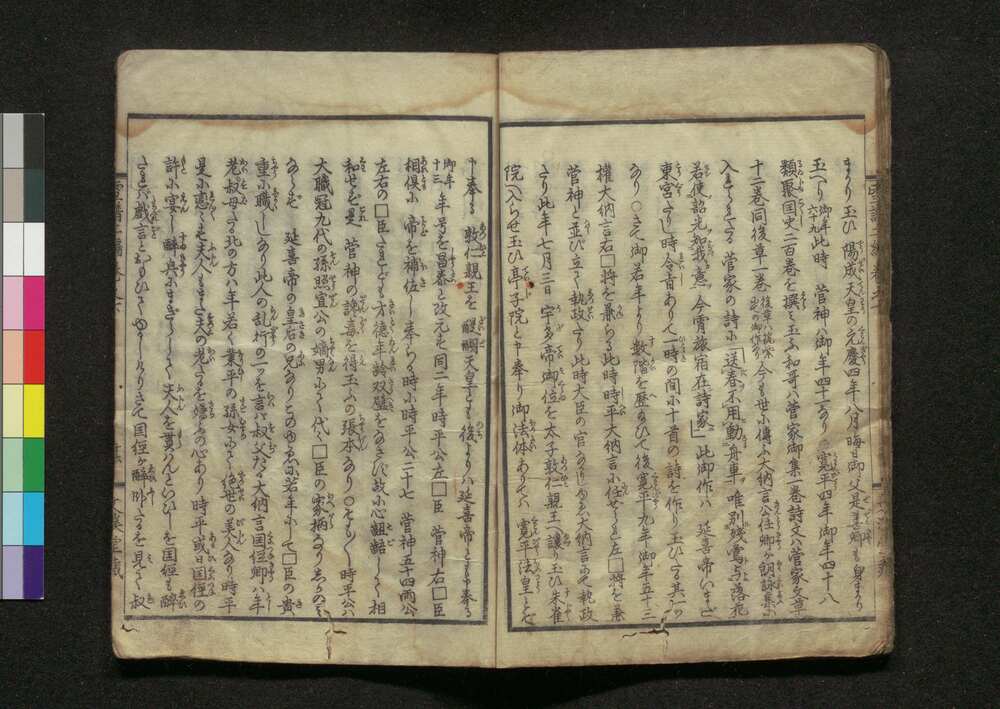 まかり玉ひ 陽成天皇の元慶四年八月晦日御父是善卿も身まかり
玉へり 御年六十九 此時 菅神ハ御年四十一なり ○寛平四年御年四十八
類聚国史二百巻を撰ミ玉ふ和哥ハ菅家御集一巻詩文ハ菅家文章
十二巻同後章一巻 今も世に傳ふ大納言公任卿ヶ朗詠集に
入られたる 菅家の詩に「送春不用動舟車 唯別残鶯与落花
若使韶光知我意 今宵旅宿在詩家」此御作ハ 延喜帝いまだ
東宮たりし時令旨ありて一時の間に十首の詩を作り玉ひたる其一つ
なり ○さて御若年より数階を歴給ひて後寛平九年御年五十三
権大納言右□将を兼らる此時時平大納言に任せられ左□将を兼
菅神と並び立て執政たり此時大臣の官なかりしゆゑ大納言にて執政
たり此年七月三日 宇多帝御位を太子敦仁親王へ譲り玉ひ朱雀
院へ入らせ玉ひ亭子院と申奉り御法体ありてハ 寛平法皇とぞ
申奉る 敦仁親王を 醍醐天皇とも後よりハ延喜帝とも申奉る
御年十三 年号を昌泰と改元す同二年時平公左□臣 菅神右□臣
相倶に 帝を補佐し奉らる時に時平公二十七 菅神五十四両公
左右の□臣たれども才徳年齢双璧をなさゞる故に心齟齬して相
和せず是 菅神の讒毒を得玉ふの張本なり ○そも〳〵時平公ハ
大職冠九代の孫照宣公の嫡男にて代々□臣の家柄なり
延喜帝の皇后の兄なりこのゆゑに若年にして□臣の貴
重に職しなり此人の乱行の一ツを言ハ叔父たる大納言国経卿ハ年
老叔母たる北の方ハ年若く業平の孫女にして絶世の美人なり時平
是に恋々す夫人もまた夫の老たるを嫌ふの心あり時平或日国経の
許に宴し酔興にまぎらして夫人を貰んといひしを国経も酔